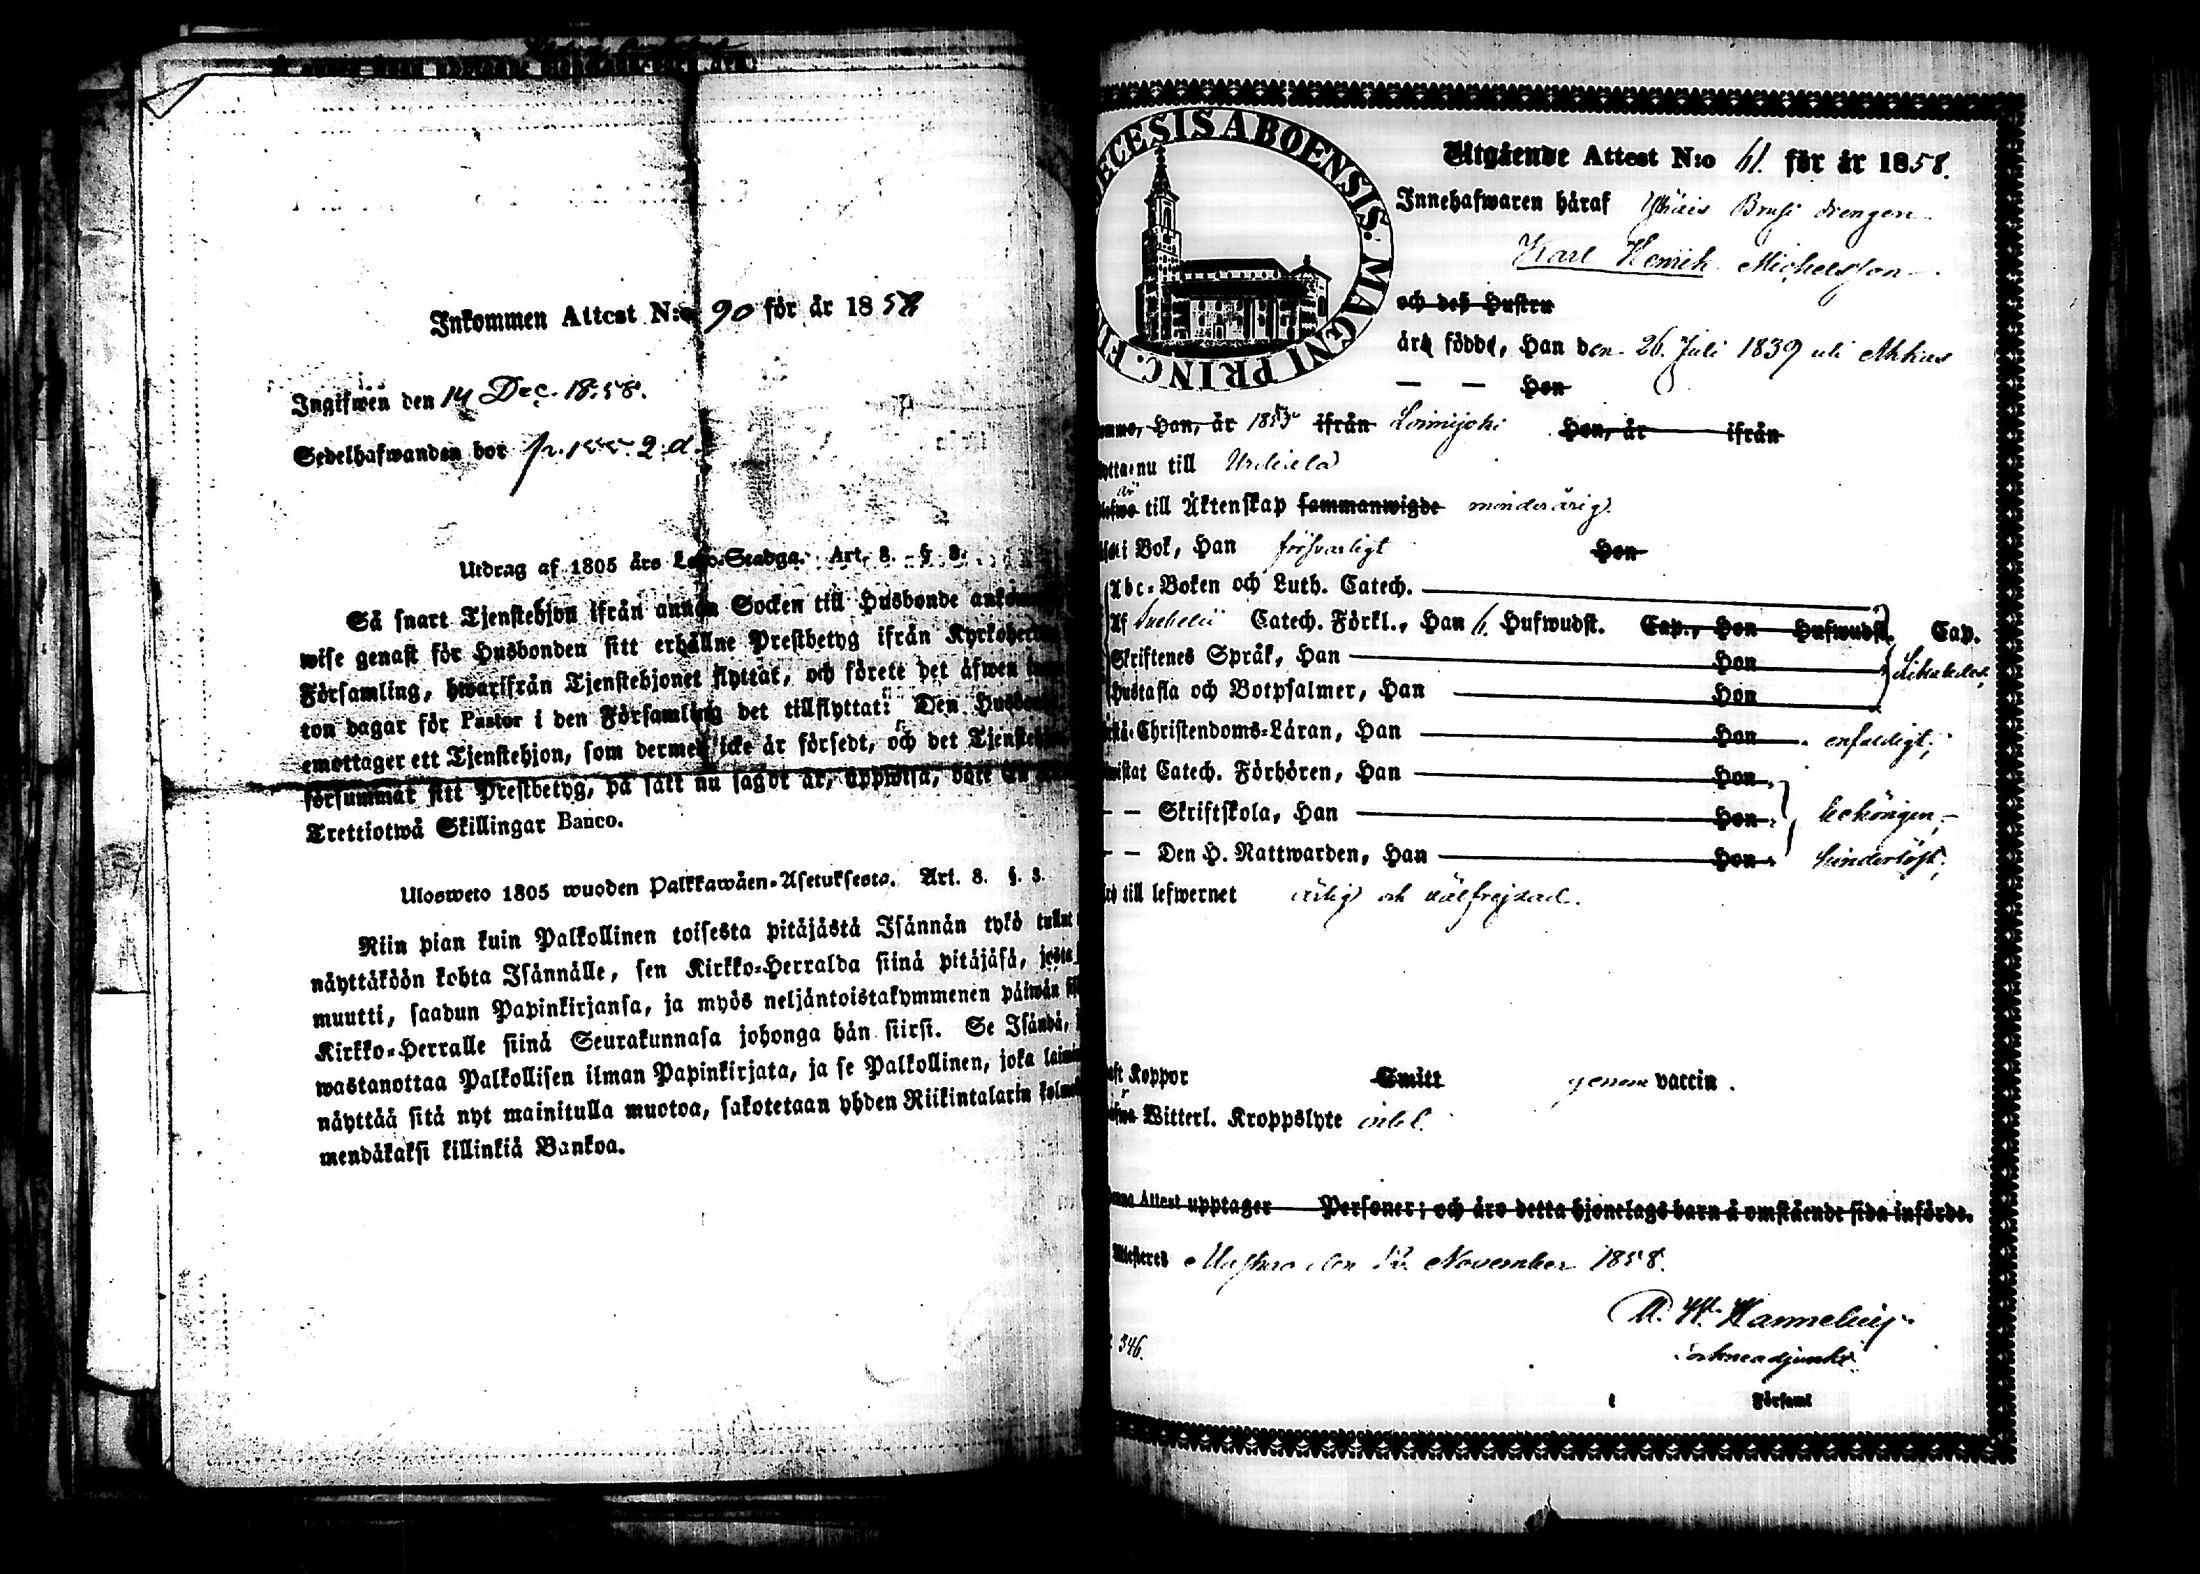 Inkommen Attest N:o 90 för år 1858
Ingifwen den 14 Dec. 18:58.
Sedelhafwanden bor p. 155 2. d.
Utdrag af 1805 års Lego-Stadga. Art. 8. § 3.
Så snart Tjenstehjon ifrån annan Socken till Husbonde
wise genast för Husbonden sitt erhållne Prestbetyg ifrån
Församling, hwarifrån Tjenstehjonet flyttat, och förete det äfwen
ton dagar för Pastor i den Församling det tillflyttat: Den
emottager ett Tjenstehjon, som dermed icke är försedt, och det
försummar sitt Prestbetyg, på sätt nu sagdt är, uppwisa,
Trettiotwå Skillingar Banco.
Ulosweto 1805 wuoden Palkkawäen-Asetuksesta. Art. 8. §. 3.
Niin pian kuin Palkollinen toisesta pitäjästä Isännän tykö tullut
näyttäköön kohta Isännälle, sen Kirkko-Herralda siinä pitäjäsä,
muutti, saadun Papinkirjansa, ja myös neljäntoistakymmenen päiwän
Kirkko-Herralle siinä Seurakunnasa johonga hän siirsi. Se Isändä,
wastanottaa Palkollisen ilman Papinkirjata, ja se Palkollinen, joka
näyttää sitä nyt mainitulla muotoa, sakotetaan yhden Riikintalarin
mendäkaksi killinkiä Bankoa.
ECESIS ABOENSIS. MAGNI PRINC. FI
Utgående Attest N:o 61. för år 1858.
Innehafwaren häraf Brusi drengen
Karl Henrik Michelsson
och deß Hustru
äro födde, Han den 26 Juli 1839 uti Akkas
— — Hon
Han, år 1853 ifrån Loimijoki Hon, år ifrån
nu till Urdiala
är till Äktenskap sammanwigde minderårig.
i Bok, Han försvarligt Hon
Abc-Boken och Luth. Catech.
Af Svebelii Catech. Förkl., Han 6. Hufwudst. Cap., Hon Hufwudst. Cap.
Skriftenes Språk, Han Hon
Hustafla och Botpsalmer, Han Hon
Christendoms-Läran, Han Hon enfaldigt;
Catech. Förhören, Han Hon
— — Skriftskola, Han Hon behörigen,
— — Den H. Nattwarden, Han Hon hinderlöst;
till lefwernet ärlig och välfrejdad.
Koppor Smitt genom vaccin.
Witterl. Kroppslyte intet.
Attest upptager Personer; och äro detta hjonelags barn å omstående sida införde.
den 12. November 1858.
346.
i Församl